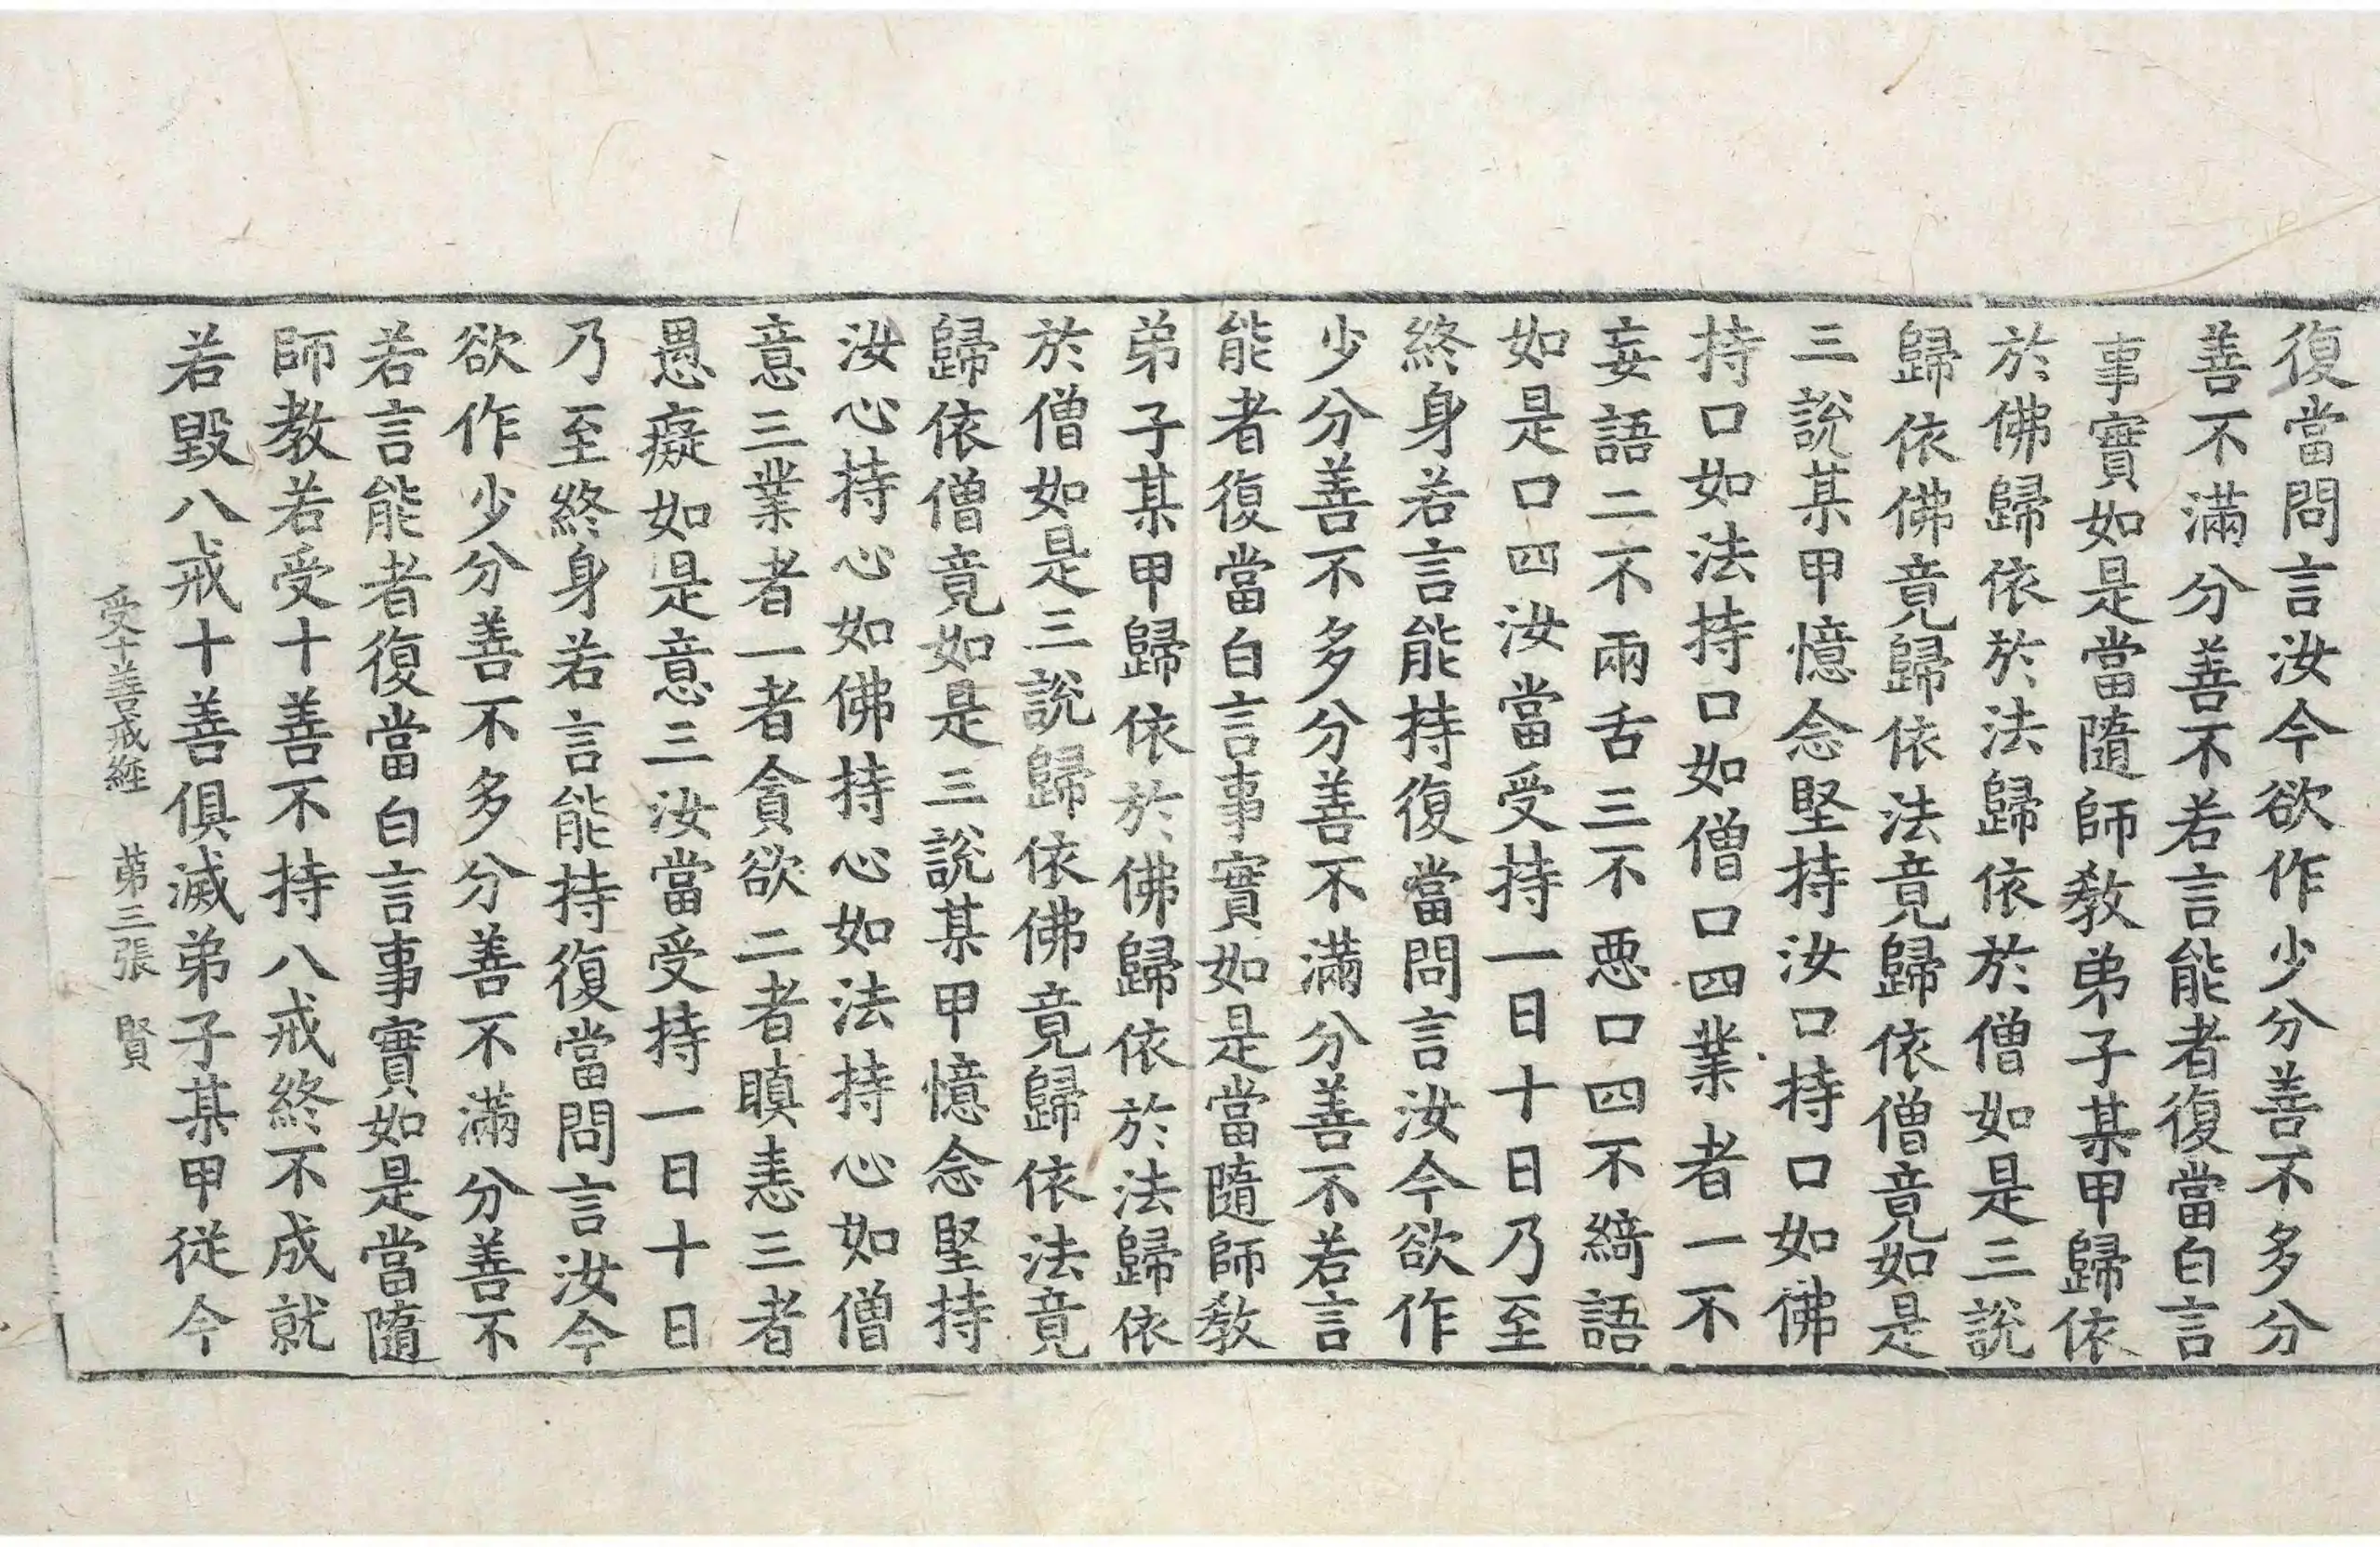 復當問言汝今欲作少分善不多分
善不滿分善不若言能者復當白言
事實如是當隨師教弟子某甲歸依
於佛歸依於法歸依於僧如是三說
歸依佛竟歸依法竟歸依僧竟如是
三說某甲憶念堅持汝口持口如佛
持口如法持口如僧口四業者一不
妄語二不兩舌三不惡口四不綺語
如是口四汝當受持一日十日乃至
終身若言能持復當問言汝今欲作
少分善不多分善不滿分善不若言
能者復當白言事實如是當隨師教
弟子某甲歸依於佛歸依於法歸依
於僧如是三說歸依佛竟歸依法竟
歸依僧竟如是三說某甲憶念堅持
汝心持心如佛持心如法持心如僧
意三業者一者貪欲二者瞋恚三者
愚癡如是意三汝當受持一日十日
乃至終身若言能持復當問言汝今
欲作少分善不多分善不滿分善不
若言能者復當白言事實如是當隨
師教若受十善不持八戒終不成就
若毀八戒十善俱滅弟子某甲從今
受十善戒經 第三張 賢